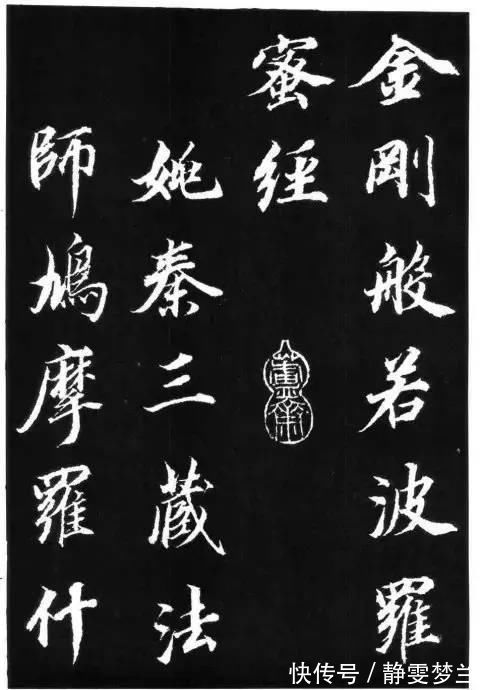 金剛般若波羅
蜜經
姚秦三藏法
師鳩摩羅什
快传号／静雯梦兰